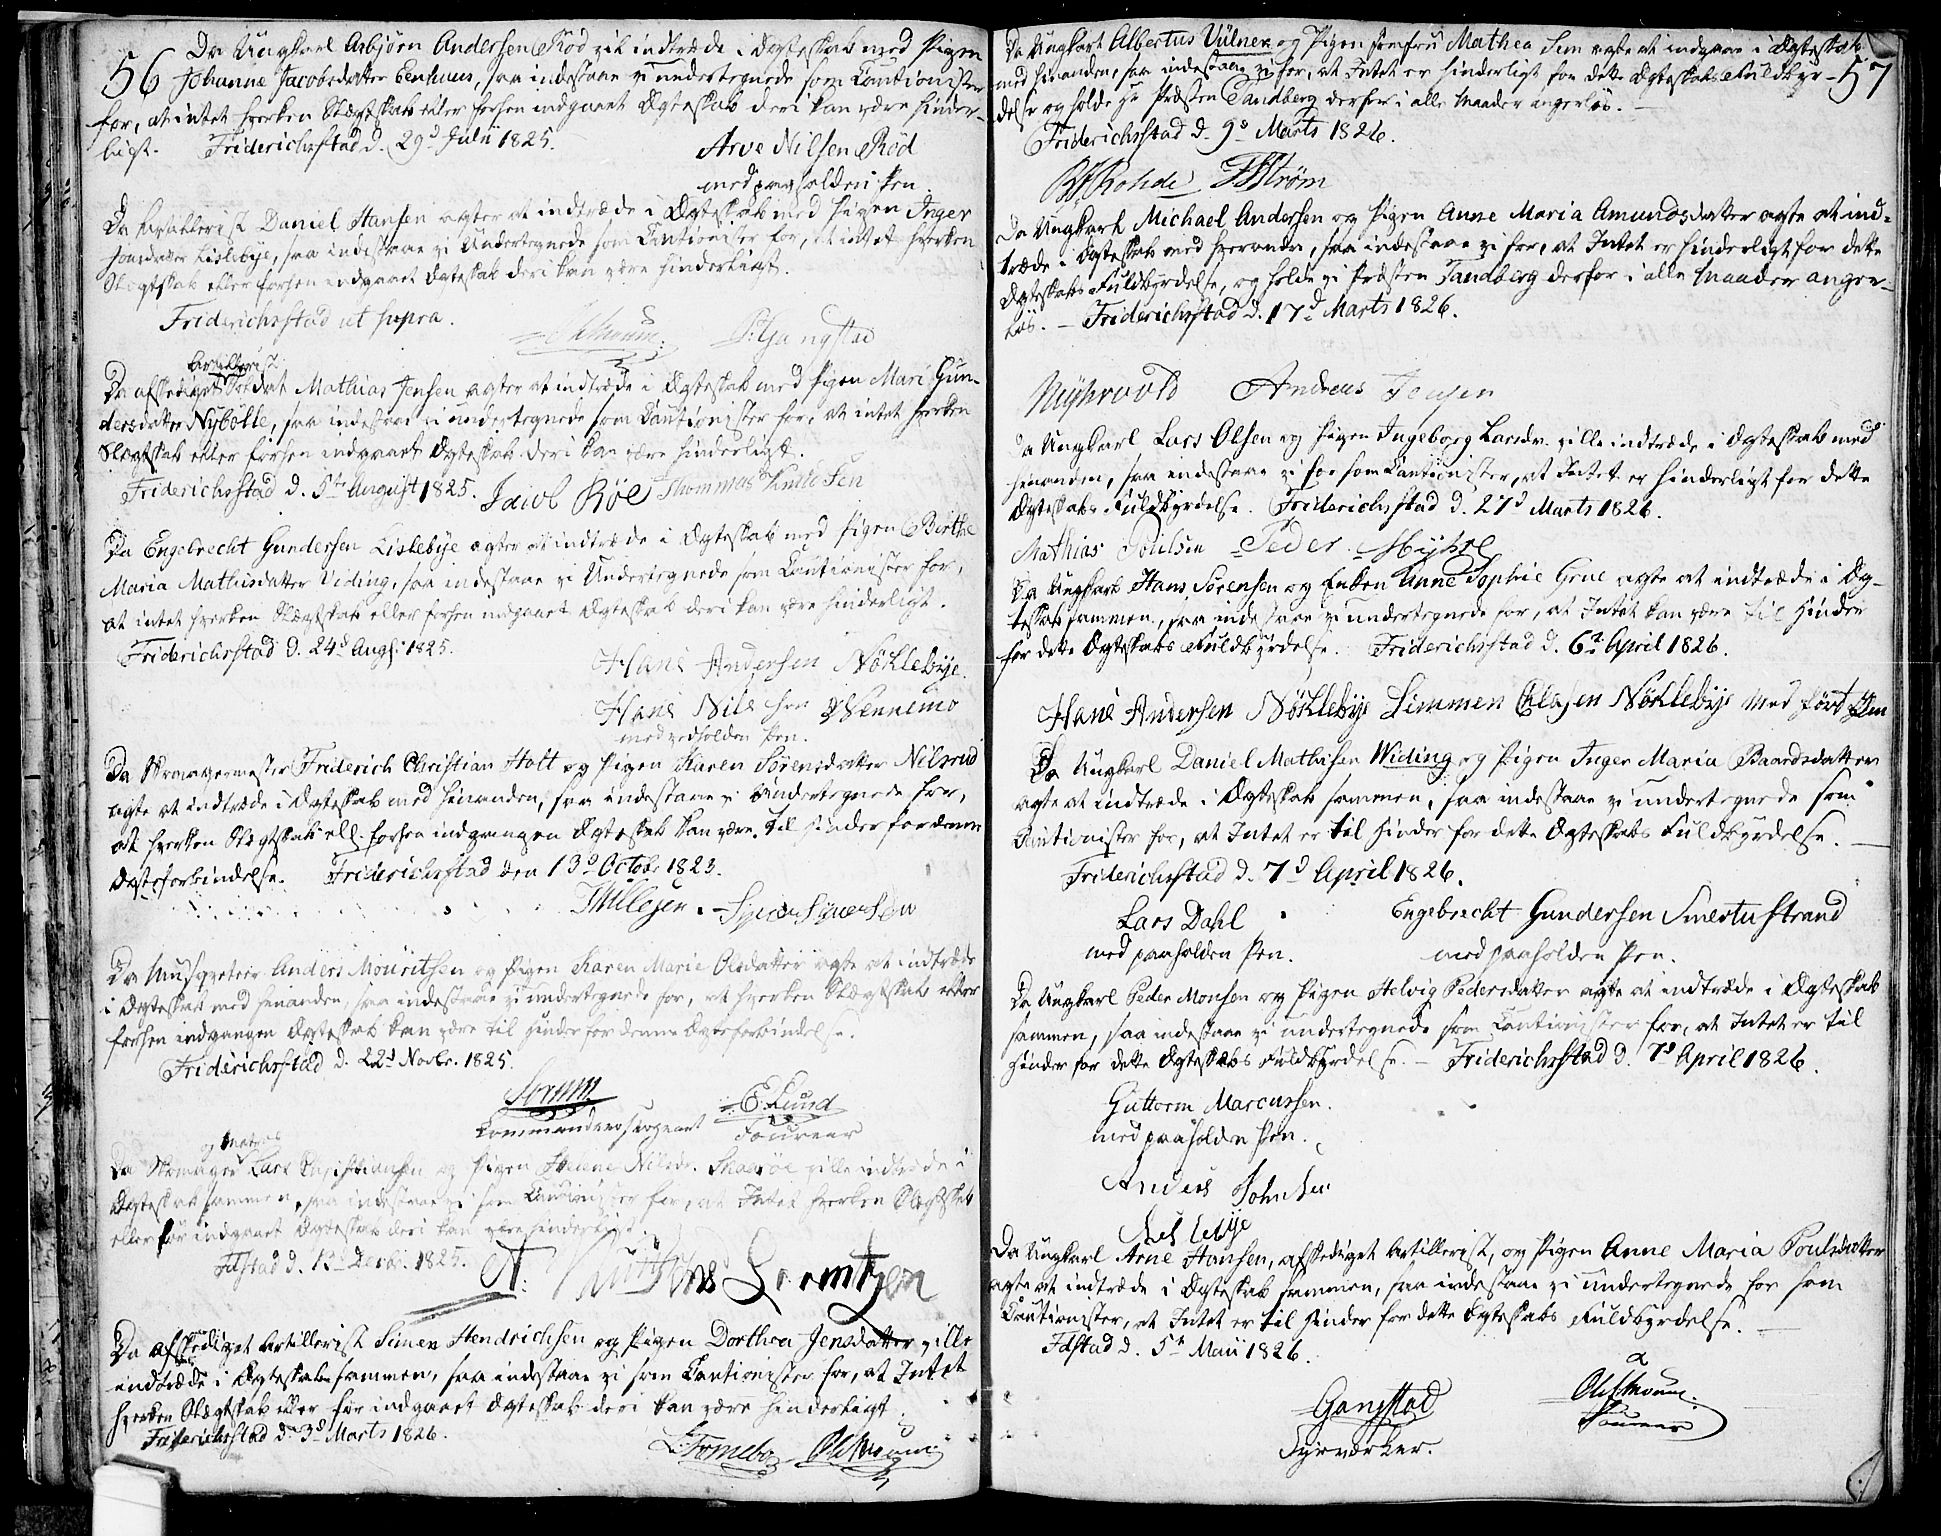 56
Da Ungkarl Asbjörn Andersen Röd vil indtræde i Ægteskab med Pigen
Johanne Jacobsdatter Eenhuus, saa indestaae vi undertegnede som Cautionister
for, at intet hverken Slægtskab eller forhen indgaaet Ægteskab deri kan være hinder-
ligt. Friderichsstad d. 29d Julii 1825.
Arve Nilsen Röd
med paaholden Pen.
Da Artillerist Daniel Hansen agter at indtræde i Ægteskab med Pigen Inger
Hansdatter Lislebye, saa indestaae vi Undertegnede som Cautionister for, at intet hverken
Slægtskab eller forhen indgaaet Ægteskab deri kan være hinderligt.
Friderichsstad ut supra.
S: Gangstad
Artillerist
Da afskediget Soldat Mathias Jensen agter at indtræde i Ægteskab med Pigen Mari Gun-
dersdatter Nybölle, saa indestaae vi undertegnede som Cautionister for, at intet hverken
Slægtskab eller forhen indgaaet Ægteskab deri kan være hinderligt.
Friderichsstad d. 5te August 1825. Jacob Röe Thommas
Da Engebrecht Gundersen Lislebye agter at indtræde i Ægteskab med Pigen Birthe
Maria Mathisdatter Viding, saa indestaae vi Undertegnede som Cautionister for,
at intet hverken Slægtskab eller forhen indgaaet Ægteskab deri kan være hinderligt.
Friderichsstad d. 24d Augs: 1825.
Hans Andersen Nöklebye.
Hans Nils Sen
med vedholden Pen.
Da Skrædermester Friderich Christian Holt og Pigen Karen Sörensdatter Nilsrud
agte at indtræde i Ægteskab med hinanden, saa indestaae vi Undertegnede for,
at hverken Slægtskab ell. forhen indgangen Ægteskab kan være til Hinder for denne
Ægteforbindelse. Friderichsstad den 13d Octobr 1825.
Da Musqveteer Anders Mouritsen og Pigen Karen Marie Olsdatter agte at indtræde
i Ægteskab med hinanden, saa indestaae vi undertegnede for, at hverken Slægtskab eller
forhen indgangen Ægteskab kan være til Hinder for denne Ægteforbindelse.
Friderichsstad d. 22d Novbr. 1825.
Sorum
Commandeersergeant
E: Lund
Foureer
og
Da Skomager Lars Christiansen og Pigen Helene Nilsdr. Skaaröe ville indtræde i
Ægteskab sammen, saa indestaae vi som Cautionister for, at Intet hverken Slægtskab
eller för indgaaet Ægteskab deri kan være hinderligt.
Fdstad d. 12 Decbr. 1825.
A: Lorentzen
Da afskediget Artillerist Simen Hendrichsen og Pigen Dorthea Jensdatter ville
indtræde i Ægteskab sammen, saa indestaae vi som Cautionister for, at Intet
hverken Slægtskab eller för indgaaet Ægteskab deri kan være hinderligt.
Friderichsstad d. 3d Marts 1826.
L: Tornebo
57
Da Ungkarl Albertus Vülner og Pigen Jomfru Mathea Sem agte at indgaae i Ægteskab
med hinanden, saa indestaae vi for, at Intet er hinderligt for dette Ægteskabs Fuldbyr-
delse og holde Hr Præsten Tandberg derfor i alle Maader angerlös.
Friderichsstad d. 9d Marts 1826.
Rohde Ström
Da Ungkarl Michael Andersen og Pigen Anne Maria Amundsdatter agte at ind-
træde i Ægteskab med hverandre, saa indestaae vi for, at Intet er hinderligt for dette
Ægteskabs Fuldbyrdelse, og holde vi Præsten Tandberg derfor i alle Maader anger-
lös. Friderichsstad d. 17d Marts 1826.
Andreas Jensen
Da Ungkarl Lars Olsen og Pigen Ingeborg Larsdr. ville indtræde i Ægteskab med
hinanden, saa indestaae vi for som Cautionister, at Intet er hinderligt for dette
Ægteskabs Fuldbyrdelse. Friderichsstad d. 27d Marts 1826.
Mathias Poulsen Peder Myhre
Da Ungkarl Hans Sörensen og Enken Anne Sophie Grue agte at indtræde i Æg-
teskab sammen, saa indestaae vi undertegnede for, at Intet kan være til Hinder
for dette Ægteskabs Fuldbyrdelse. Friderichsstad d. 6te April 1826.
Hans Andersen Nöklebye Simmen Olsen Nöklebye Med fört Pen
Da Ungkarl Daniel Mathisen Widing og Pigen Inger Maria Baardsdatter
agte at indtræde i Ægteskab sammen, saa indestaae vi undertegnede som
Cautionister for, at Intet er til Hinder for dette Ægteskabs Fuldbyrdelse.
Friderichsstad d. 7d April 1826.
Lars Dahl
med paaholden Pen.
Engebrecht Gundersen Smertustrand
med paaholden Pen.
Da Ungkarl Peder Monsen og Pigen Helvig Pedersdatter agte at indtræde i Ægteskab
sammen, saa indestaae vi undertegnede som Cautionister for, at Intet er til
Hinder for dette Ægteskabs Fuldbyrdelse. Friderichsstad d. 7d April 1826.
Guttorm Marcussen.
med paaholden Pen.
Anders Johnsen
Lislebye
Da Ungkarl Arne Hansen, afskediget Artillerist, og Pigen Anne Maria Poulsdatter
agte at indtræde i Ægteskab sammen, saa indestaae vi undertegnede for som
Cautionister, at Intet er til Hinder for dette Ægteskabs Fuldbyrdelse.
Fdstad d. 5te Maii 1826.
Gangstad
Fyrværker.
Foureer